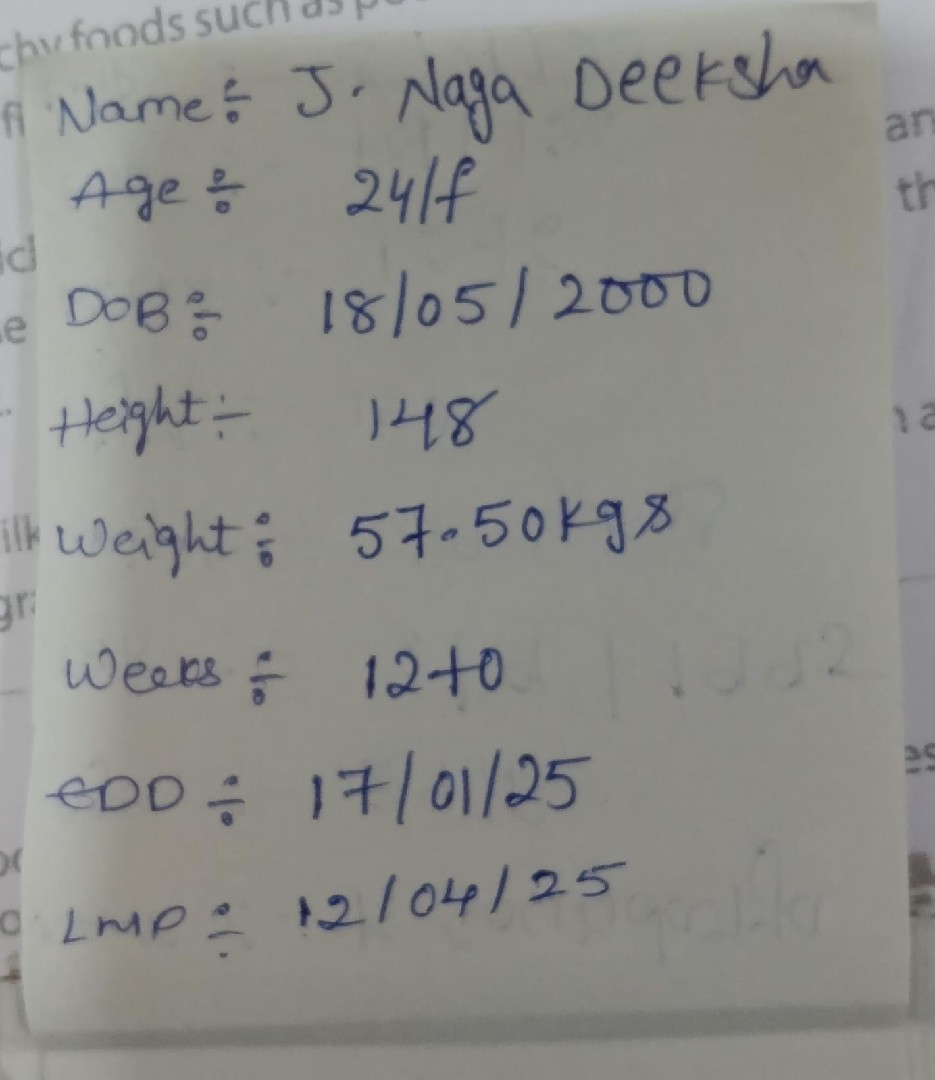 chy foods such as p
Name÷ J. Naga Deeksha
Age÷ 24/f
DOB÷ 18/05/2000
Height÷ 148
Weight÷ 57.50kgs
Weeks÷ 12+0
EDD÷ 17/01/25
LMP÷ 12/04/25